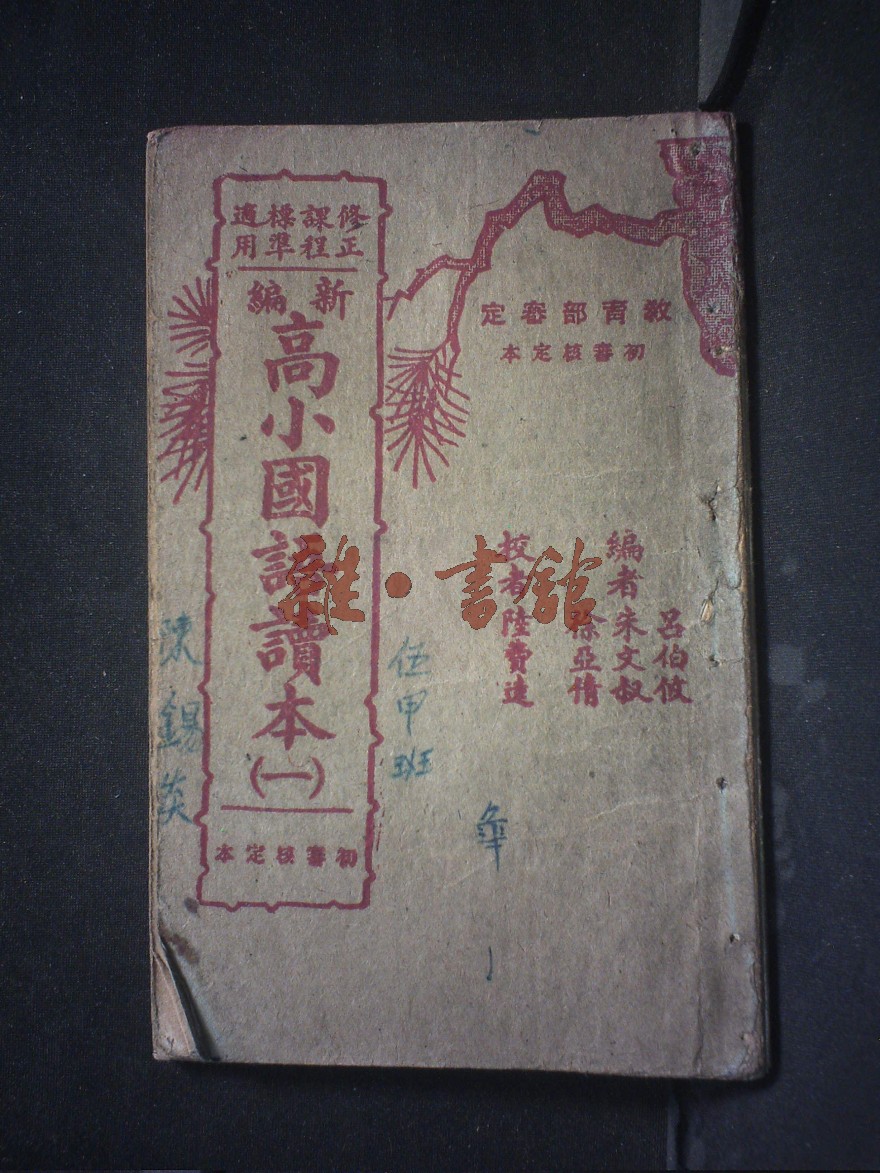 教育部審定
初審核定本
呂伯攸
編者宋文叔
徐亞倩
校者陸費逵
修正課程標準適用
新編
高小國語讀本
(一)
初審核定本
伍甲班
陳錫
雜·書館